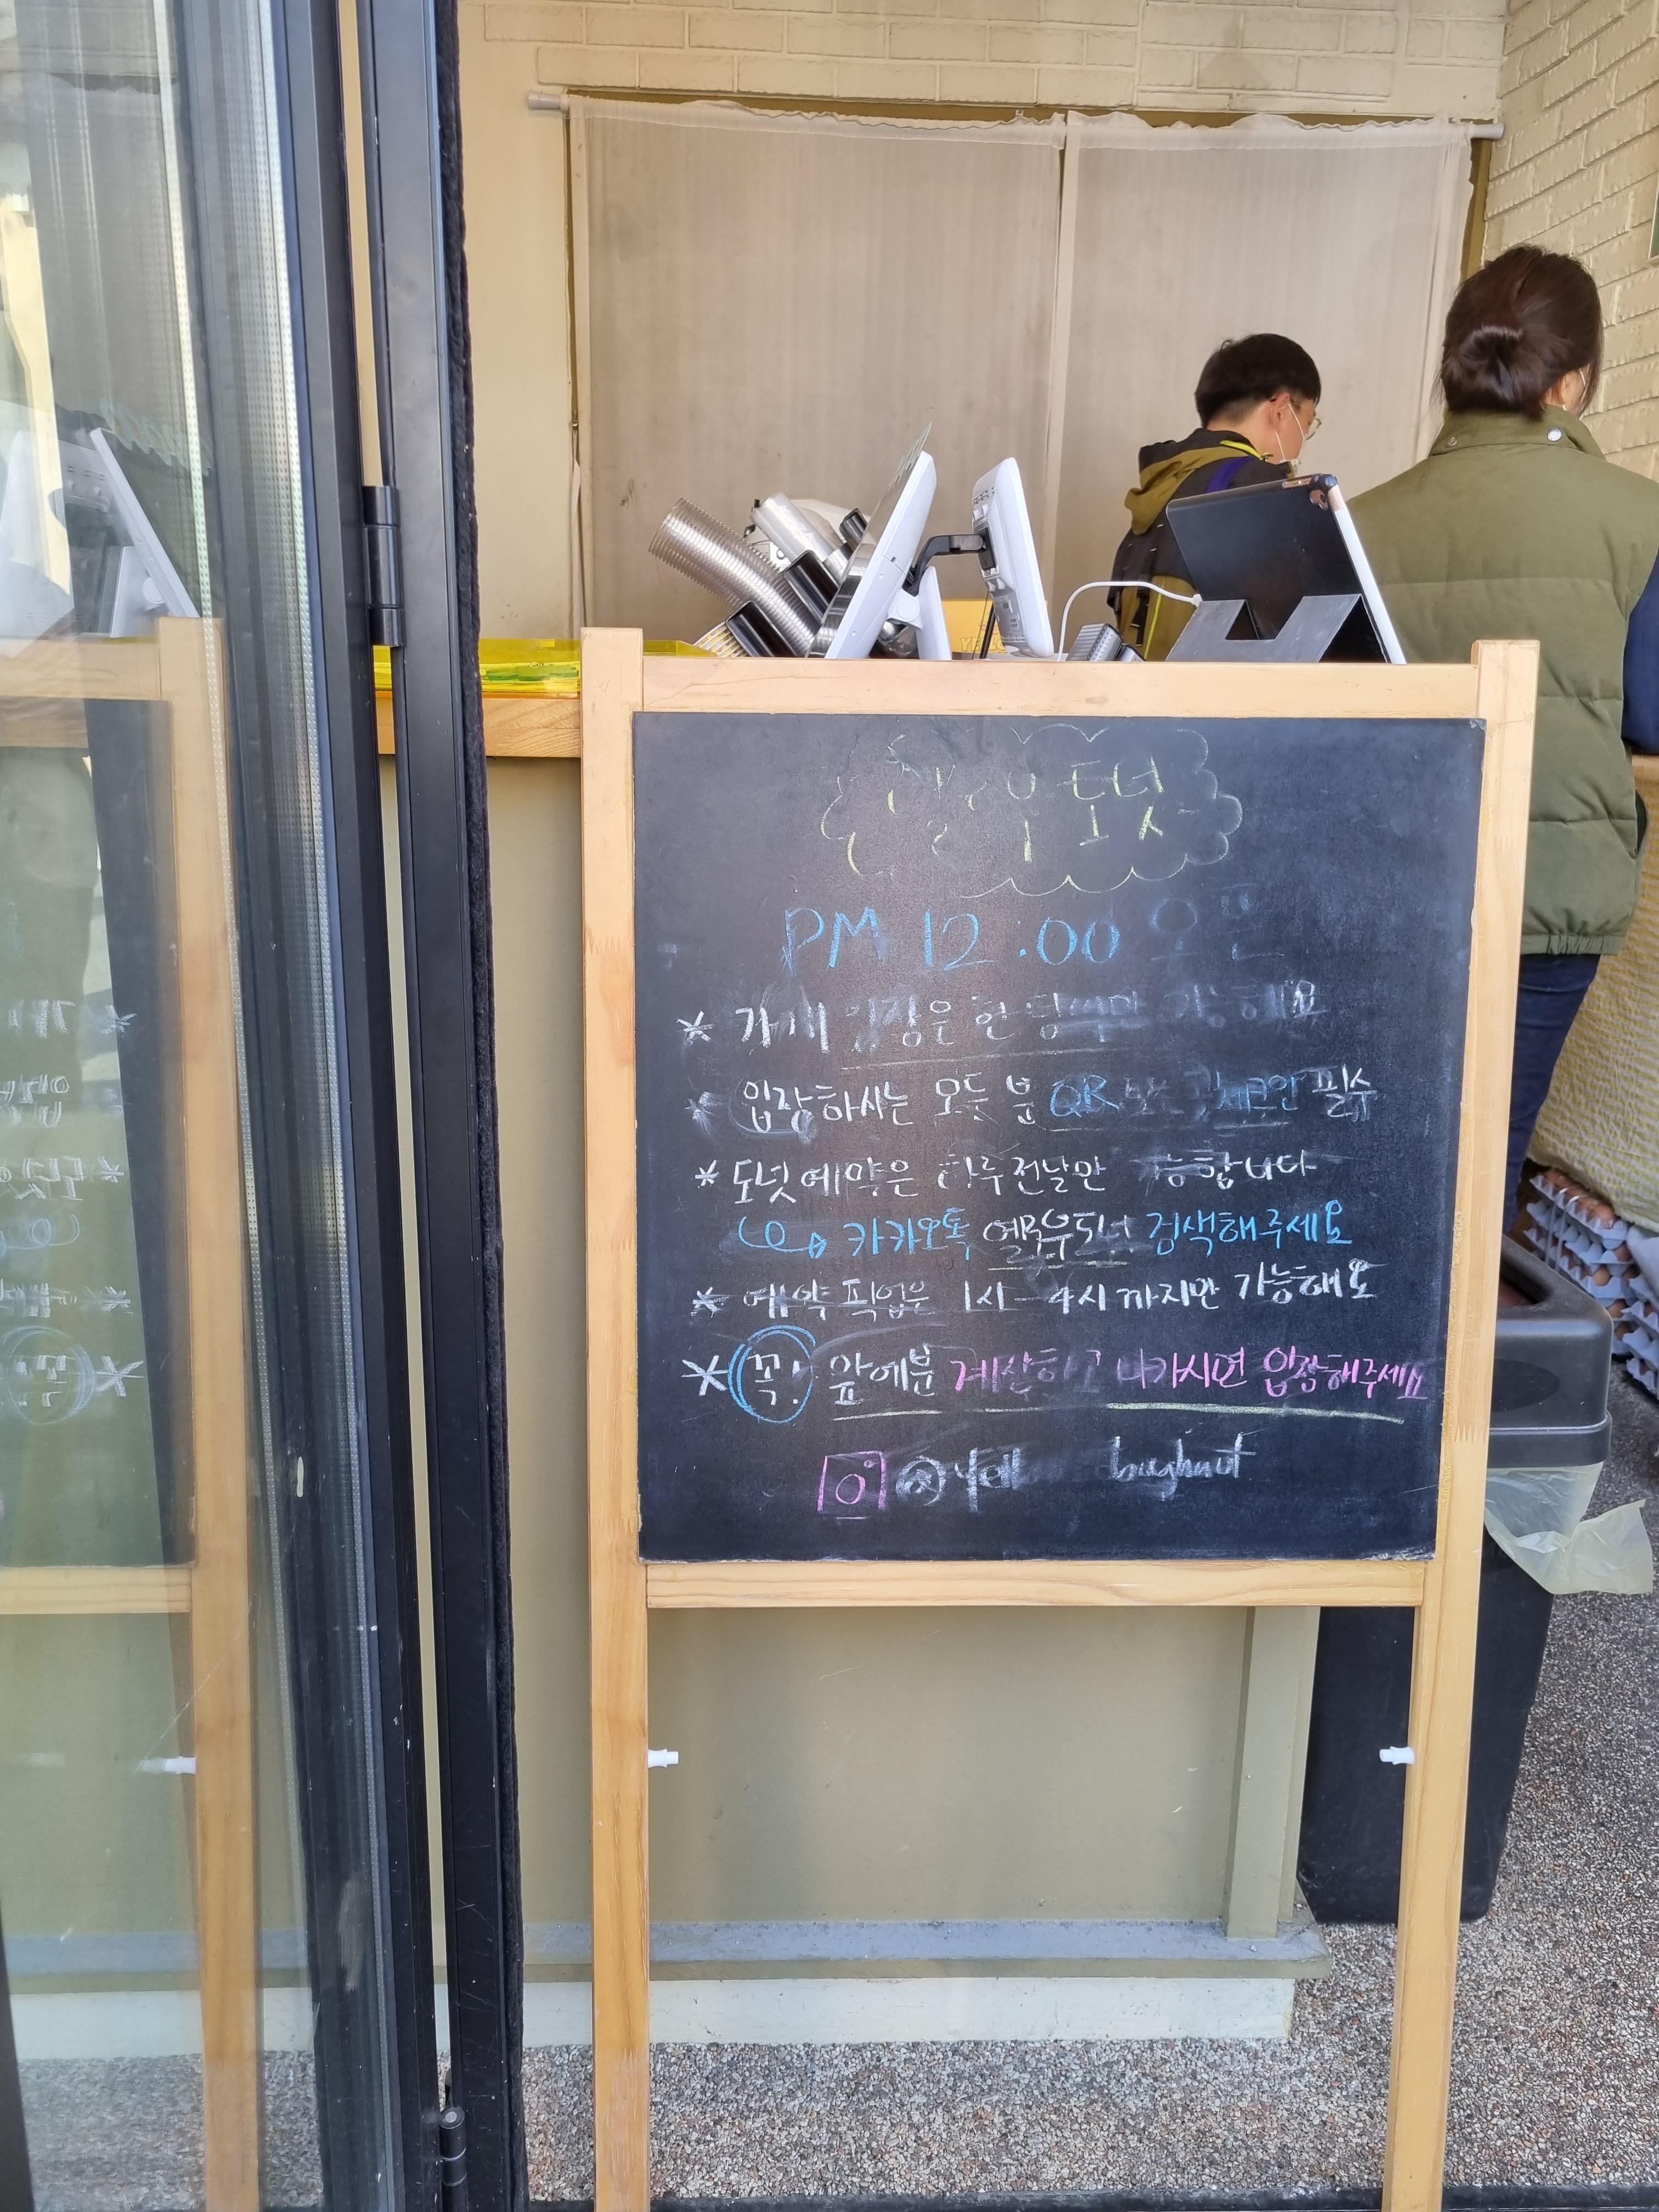 도넛
PM 12:00 오픈
* 가게 입장은 한 팀씩만 가능해요
* 입장하시는 모든 분 QR 체크인 필수
* 도넛 예약은 하루 전날만 가능합니다
카카오톡 옐로우도넛 검색해주세요
* 예약 픽업은 1시-4시까지만 가능해요
* 꼭! 앞에분 계산하고 나가시면 입장해주세요